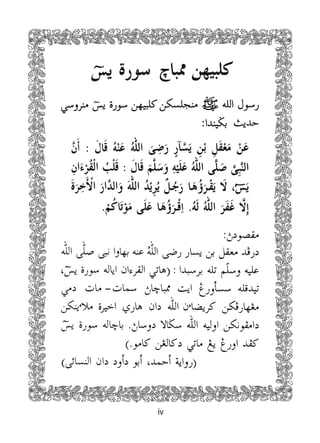 كلبيهن ممباچ سورة يسٓ
رسول الله ﷺ منجلسكن كلبيهن سورة يسٓ منروسي
حديث بݢيندا:
عَنْ مَعْقَلِ بْنِ يَسَّآرٍ رَضِىَ اللهُ عَنْهُ قَالَ : أَنَّ
النَّبِىَّ صَلَّى اللهُ عَلَيْهِ وَسَلَّمَ قَالَ : قَلْبُ الْقُرْءَانِ
يَسٓ، لَا يَقْرَؤُهَا رَجُلٌ يُرِيْدُ اللهَ وَالدَّارَ الْأَخِرَةَ
إِلَّا غَفَرَ اللهُ لَهُ. اِقْرَؤُهَا عَلَى مَوْتَاكُمْ.
مقصودڽ:
درڤد معقل بن يسار رضى اللهُ عنه بهاوا نبى صلّى الله
عليه وسلّم تله برسبدا : (هاتي القرءان اياله سورة يسٓ،
تيدقله سسأورڠ ايت ممباچاڽ سمات- مات دمي
مڠهارڤكن كريضاءن الله دان هاري اخيرة ملاءينكن
دامڤونكن اوليه الله سݢالا دوساڽ. باچاله سورة يسٓ
كڤد اورڠ يڠ ماتي دكالڠن كامو.)
(رواية أحمد، أبو دأود دان النسائى)
iv